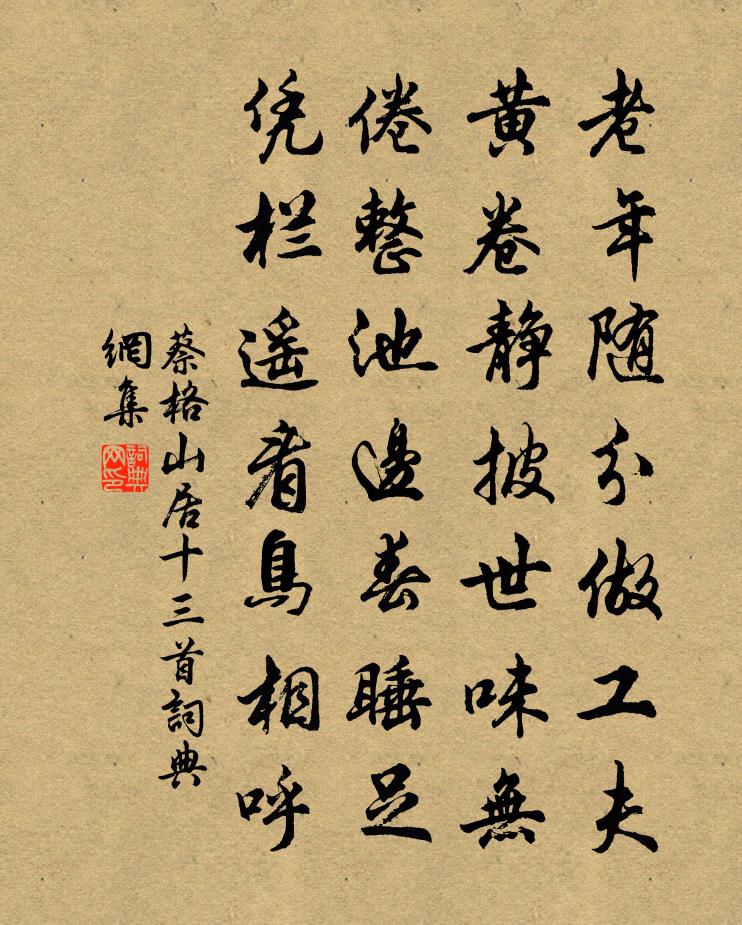 老年随分做工夫
黄卷静披世味無
倦整池邊春睡足
凭栏遥看鳥相呼
蔡格山居十三首詞典
網集
詞典
网印